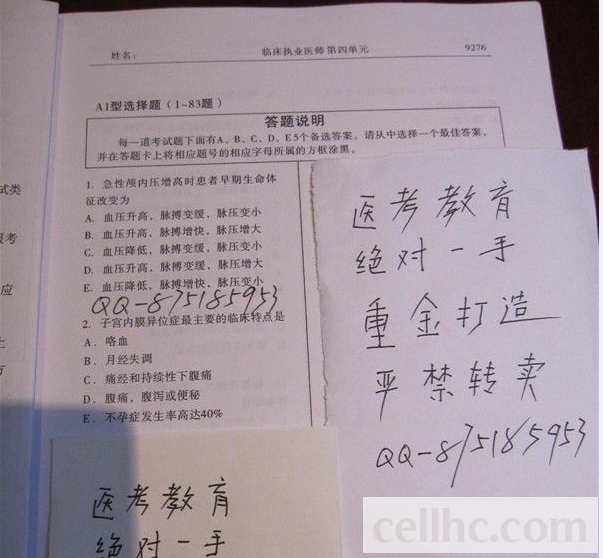 姓名：
临床执业医师第四单元
9276
A1型选择题（1~83题）
答题说明
每一道考试题下面有A、B、C、D、E5个备选答案。请从中选择一个最佳答案，
并在答题卡上将相应题号的相应字母所属的方框涂黑。
1. 急性颅内压增高时患者早期生命体
征改变为
A. 血压升高，脉搏变缓，脉压变小
B. 血压升高，脉搏增快，脉压增大
C. 血压降低，脉搏变缓，脉压变小
D. 血压升高，脉搏变缓，脉压增大
E. 血压降低，脉搏增快，脉压变小
QQ-875185953
2. 子宫内膜异位症最主要的临床特点是
A. 咯血
B. 月经失调
C. 痛经和持续性下腹痛
D. 腹痛，腹泻或便秘
E. 不孕症发生率高达40%
医考教育
绝对一手
重金打造
严禁转卖
QQ-875185953
医考教育
绝对一手
试类
报考
应
上
方
cellhc.com